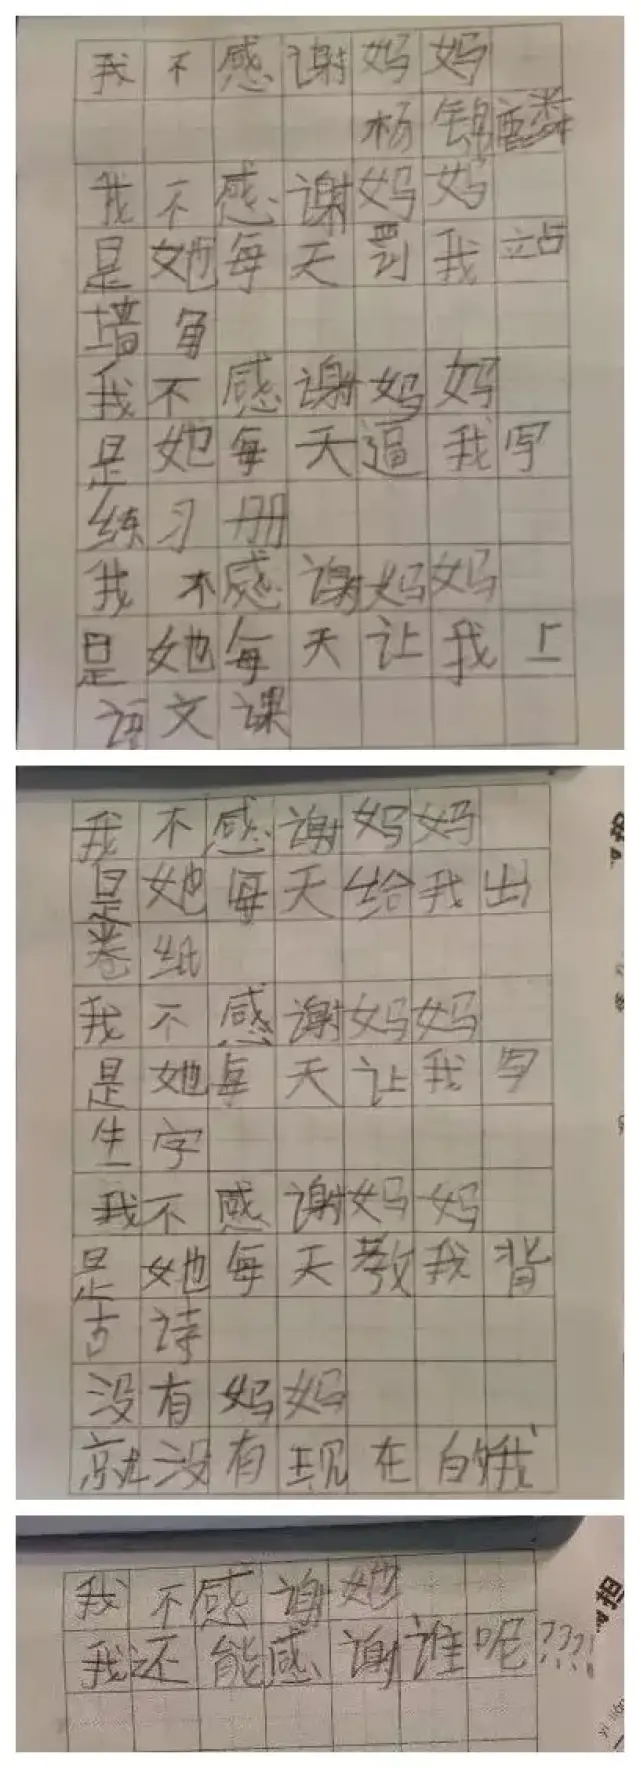 我不感谢妈妈
杨锦麟
我不感谢妈妈
是她每天罚我站
墙角
我不感谢妈妈
是她每天逼我写
练习册
我不感谢妈妈
是她每天让我上
语文课
我不感谢妈妈
是她每天给我出
卷纸
我不感谢妈妈
是她每天让我写
生字
我不感谢妈妈
是她每天教我背
古诗
没有妈妈
就没有现在的我
我不感谢她
我还能感谢谁呢????!